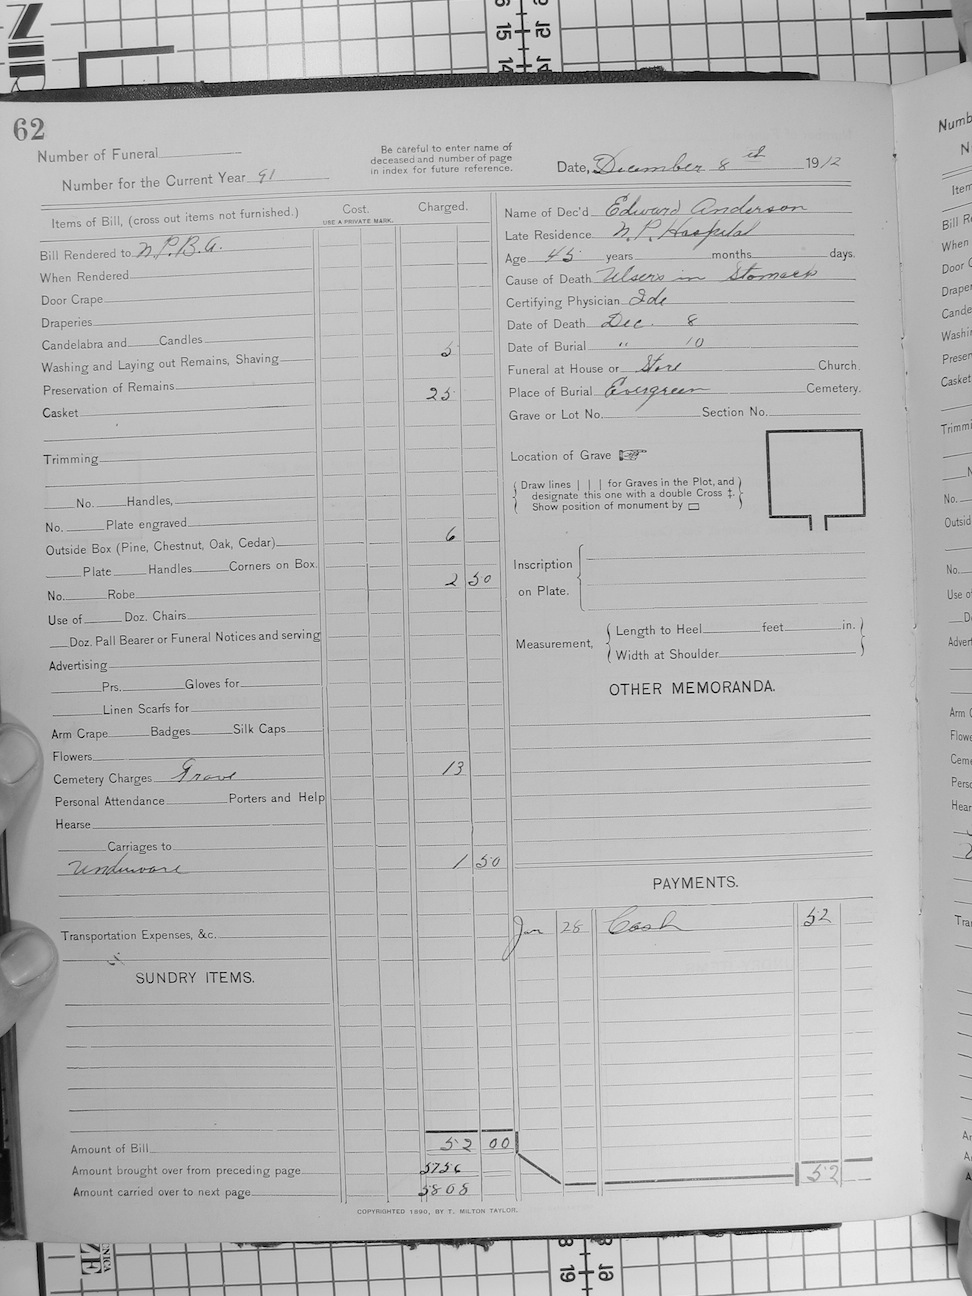 62
Number of Funeral
Number for the Current Year 91
Be careful to enter name of
deceased and number of page
in index for future reference.
Date, December 8th 1912
Items of Bill, (cross out items not furnished.) Cost. Charged.
USE A PRIVATE MARK.
Bill Rendered to N.P.B.A.
When Rendered
Door Crape
Draperies
Candelabra and Candles
Washing and Laying out Remains, Shaving 5
Preservation of Remains
Casket 25
Trimming
No. Handles,
No. Plate engraved
Outside Box (Pine, Chestnut, Oak, Cedar) 6
Plate Handles Corners on Box.
No. Robe 2 50
Use of Doz. Chairs
Doz. Pall Bearer or Funeral Notices and serving
Advertising
Prs. Gloves for
Linen Scarfs for
Arm Crape Badges Silk Caps
Flowers
Cemetery Charges Grave 13
Personal Attendance Porters and Help
Hearse
Carriages to
Underware 1 50
Transportation Expenses, &c.
SUNDRY ITEMS.
Amount of Bill 52 00
Amount brought over from preceding page 5756
Amount carried over to next page 5808
Name of Dec'd Edward Anderson
Late Residence N.P. Hospital
Age 45 years months days.
Cause of Death Ulsers in Stomach
Certifying Physician Ide
Date of Death Dec. 8
Date of Burial " 10
Funeral at House or Store Church.
Place of Burial Evergreen Cemetery.
Grave or Lot No. Section No.
Location of Grave
Draw lines | | | for Graves in the Plot, and
designate this one with a double Cross ‡.
Show position of monument by ▭
Inscription
on Plate.
Measurement, Length to Heel feet in.
Width at Shoulder
OTHER MEMORANDA.
PAYMENTS.
Jan 28 Cash 52
52
COPYRIGHTED 1890, BY T. MILTON TAYLOR.